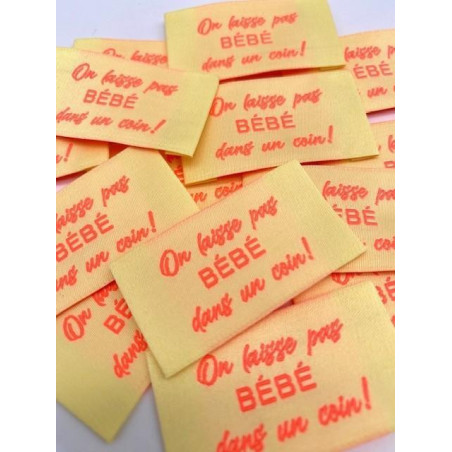 On laisse pas
BÉBÉ
dans un coin!
On laisse pas
BÉBÉ
dans un coin!
On laisse pas
BÉBÉ
dans un coin!
On laisse pas
BÉBÉ
dans un coin!
On laisse pas
BÉBÉ
dans un coin!
laisse pas
BÉBÉ
un coin!
On laisse pas
BÉBÉ
dans un coin!